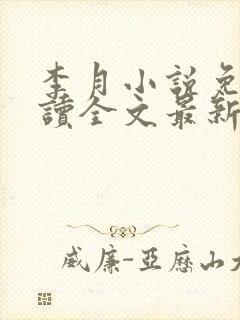 李月小說免
讀全文最新
威廉-亞歷山大